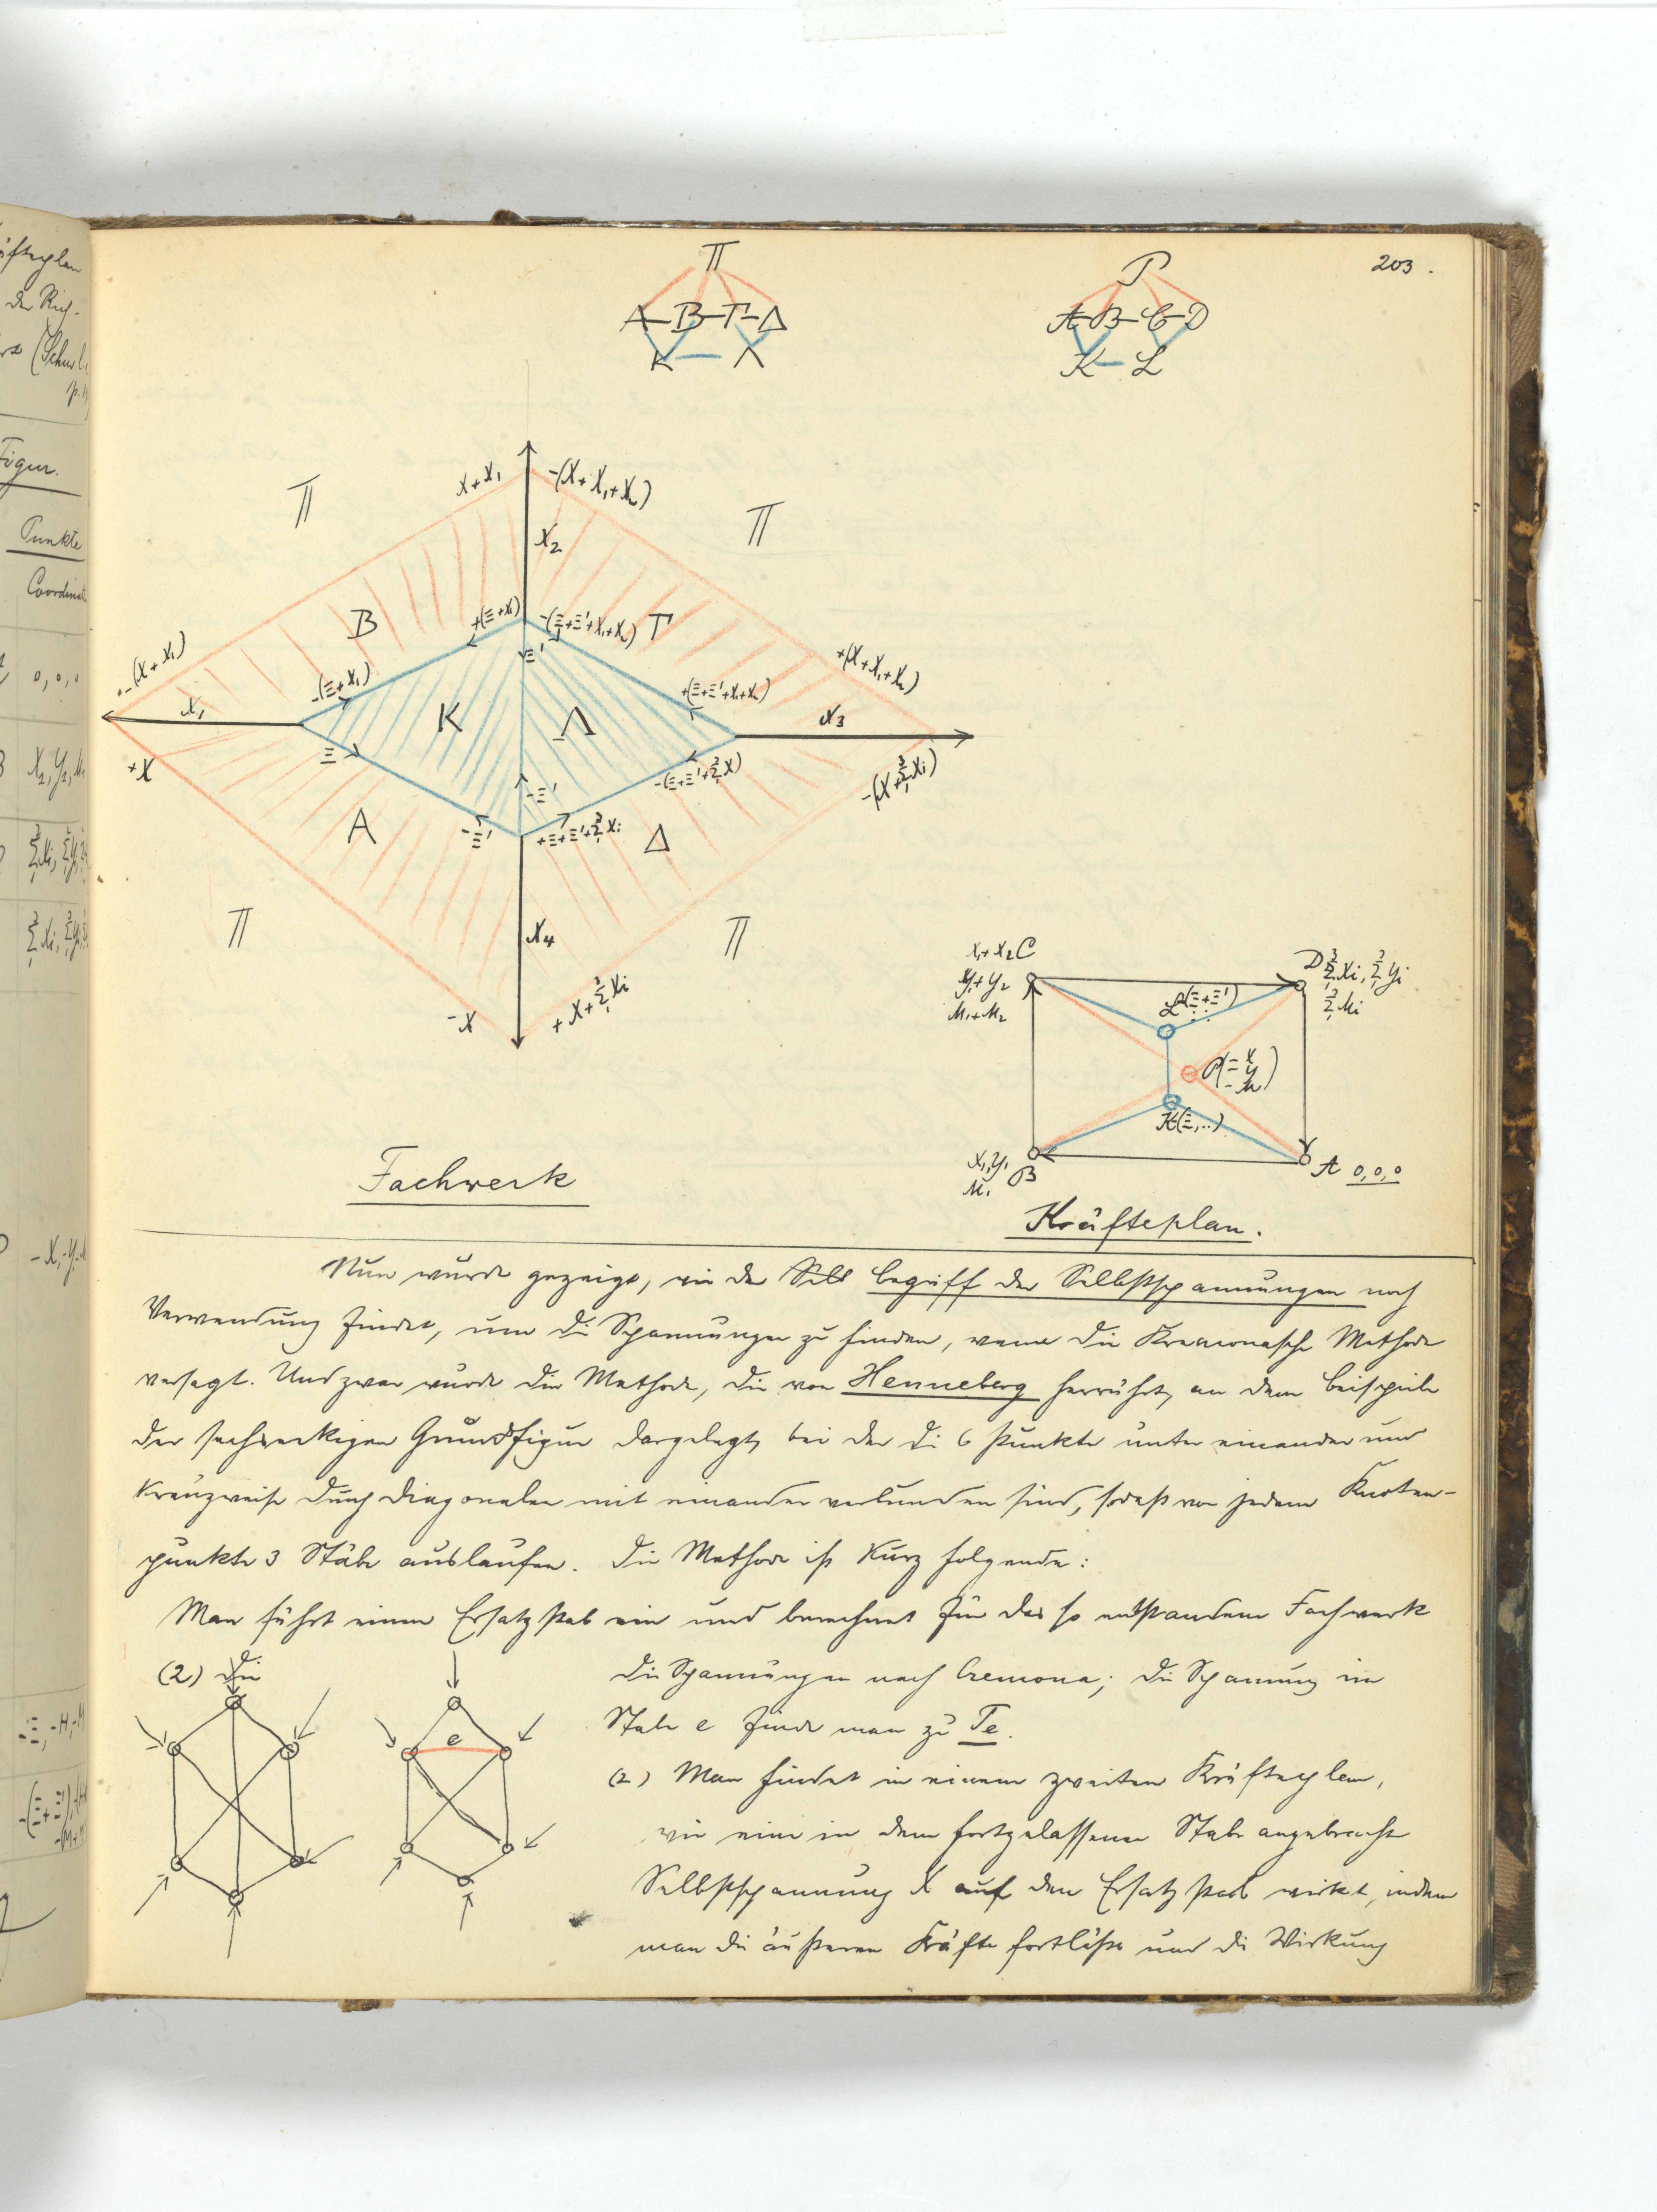 203.
Π
A–B–Γ–Δ
K – Λ
P
A–B–C–D
K–L
Π
X+X₁
-(X+X₁+X₂)
Π
X₂
B
+(Ξ+X₁)
-(Ξ+Ξ'+X₁+X₂)
Γ
-(X+X₁)
-(Ξ+X₁)
Ξ'
+(Ξ+Ξ'+X₁+X₂)
+(X+X₁+X₂)
X₁
K
Λ
X₃
+X
Ξ
-Ξ'
-(X+Σ³₁Xi)
A
-Ξ'
+Ξ+Ξ'+Σ³₁Xi
Δ
Π
X₄
Π
-X
+X+Σ³₁Xi
X₁+X₂ C
Y₁+Y₂
M₁+M₂
D Σ³₁Xi, Σ³₁Yi
Σ³₁Mi
L(Ξ+Ξ')
P(=X
Y
-M)
K(Ξ,..)
X₁,Y₁
M₁
B
A 0,0,0
Fachwerk
Kräfteplan.
Nun wurde gezeigt, wie der Selb Begriff der Selbstspannungen noch
Verwendung findet, um die Spannungen zu finden, wenn die Kremonasche Methode
versagt. Und zwar wurde die Methode, die von Henneberg herrührt, an dem Beispiele
der sechseckigen Grundfigur dargelegt, bei der die 6 Punkte unter einander und
kreuzweise durch Diagonalen mit einander verbunden sind, sodaß von jedem Knoten-
punkte 3 Stäbe auslaufen. Die Methode ist kurz folgende:
Man führt einen Ersatzstab ein und berechnet für das so entstandene Fachwerk
(2) Die
die Spannungen nach Cremona; die Spannung im
Stabe e finde man zu Te.
e
(2) Man findet in einem zweiten Kräfteplan,
wie eine in dem fortgelassenen Stabe angebrachte
Selbstspannung X auf den Ersatzstab wirkt, indem
man die äußeren Kräfte fortläßt und die Wirkung